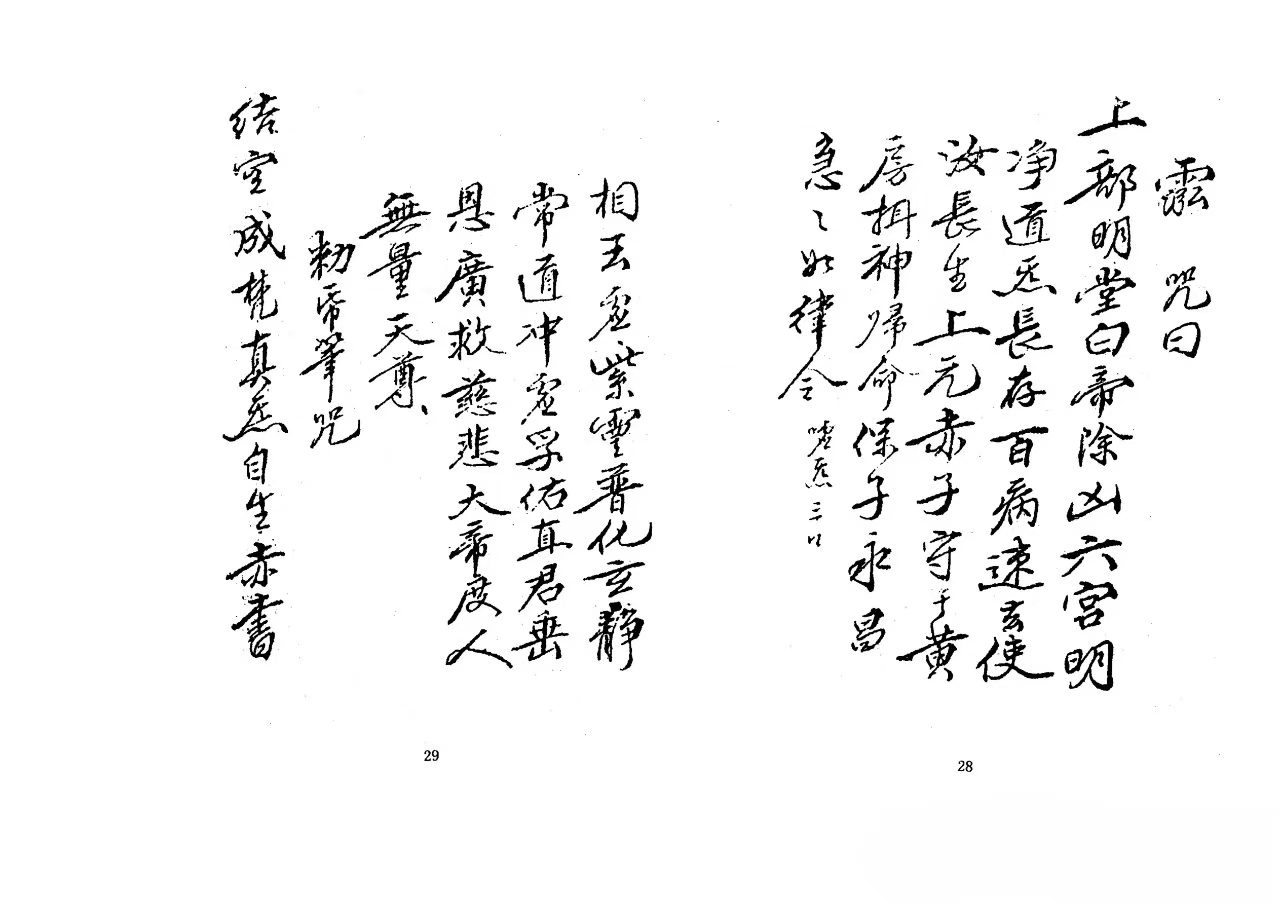 咒曰
上部明堂白帝除凶六宮明
净道炁長存百病速去使
汝長生上元赤子守于黄
房揖神歸命保子永昌
急〻如律令 噓炁三口
28
相玉虛紫靈普化玄靜
常道冲虛孚佑真君垂
恩廣救慈悲大帝度人
無量天尊、
勑帝筆咒
结空成梵真炁自生赤書
29